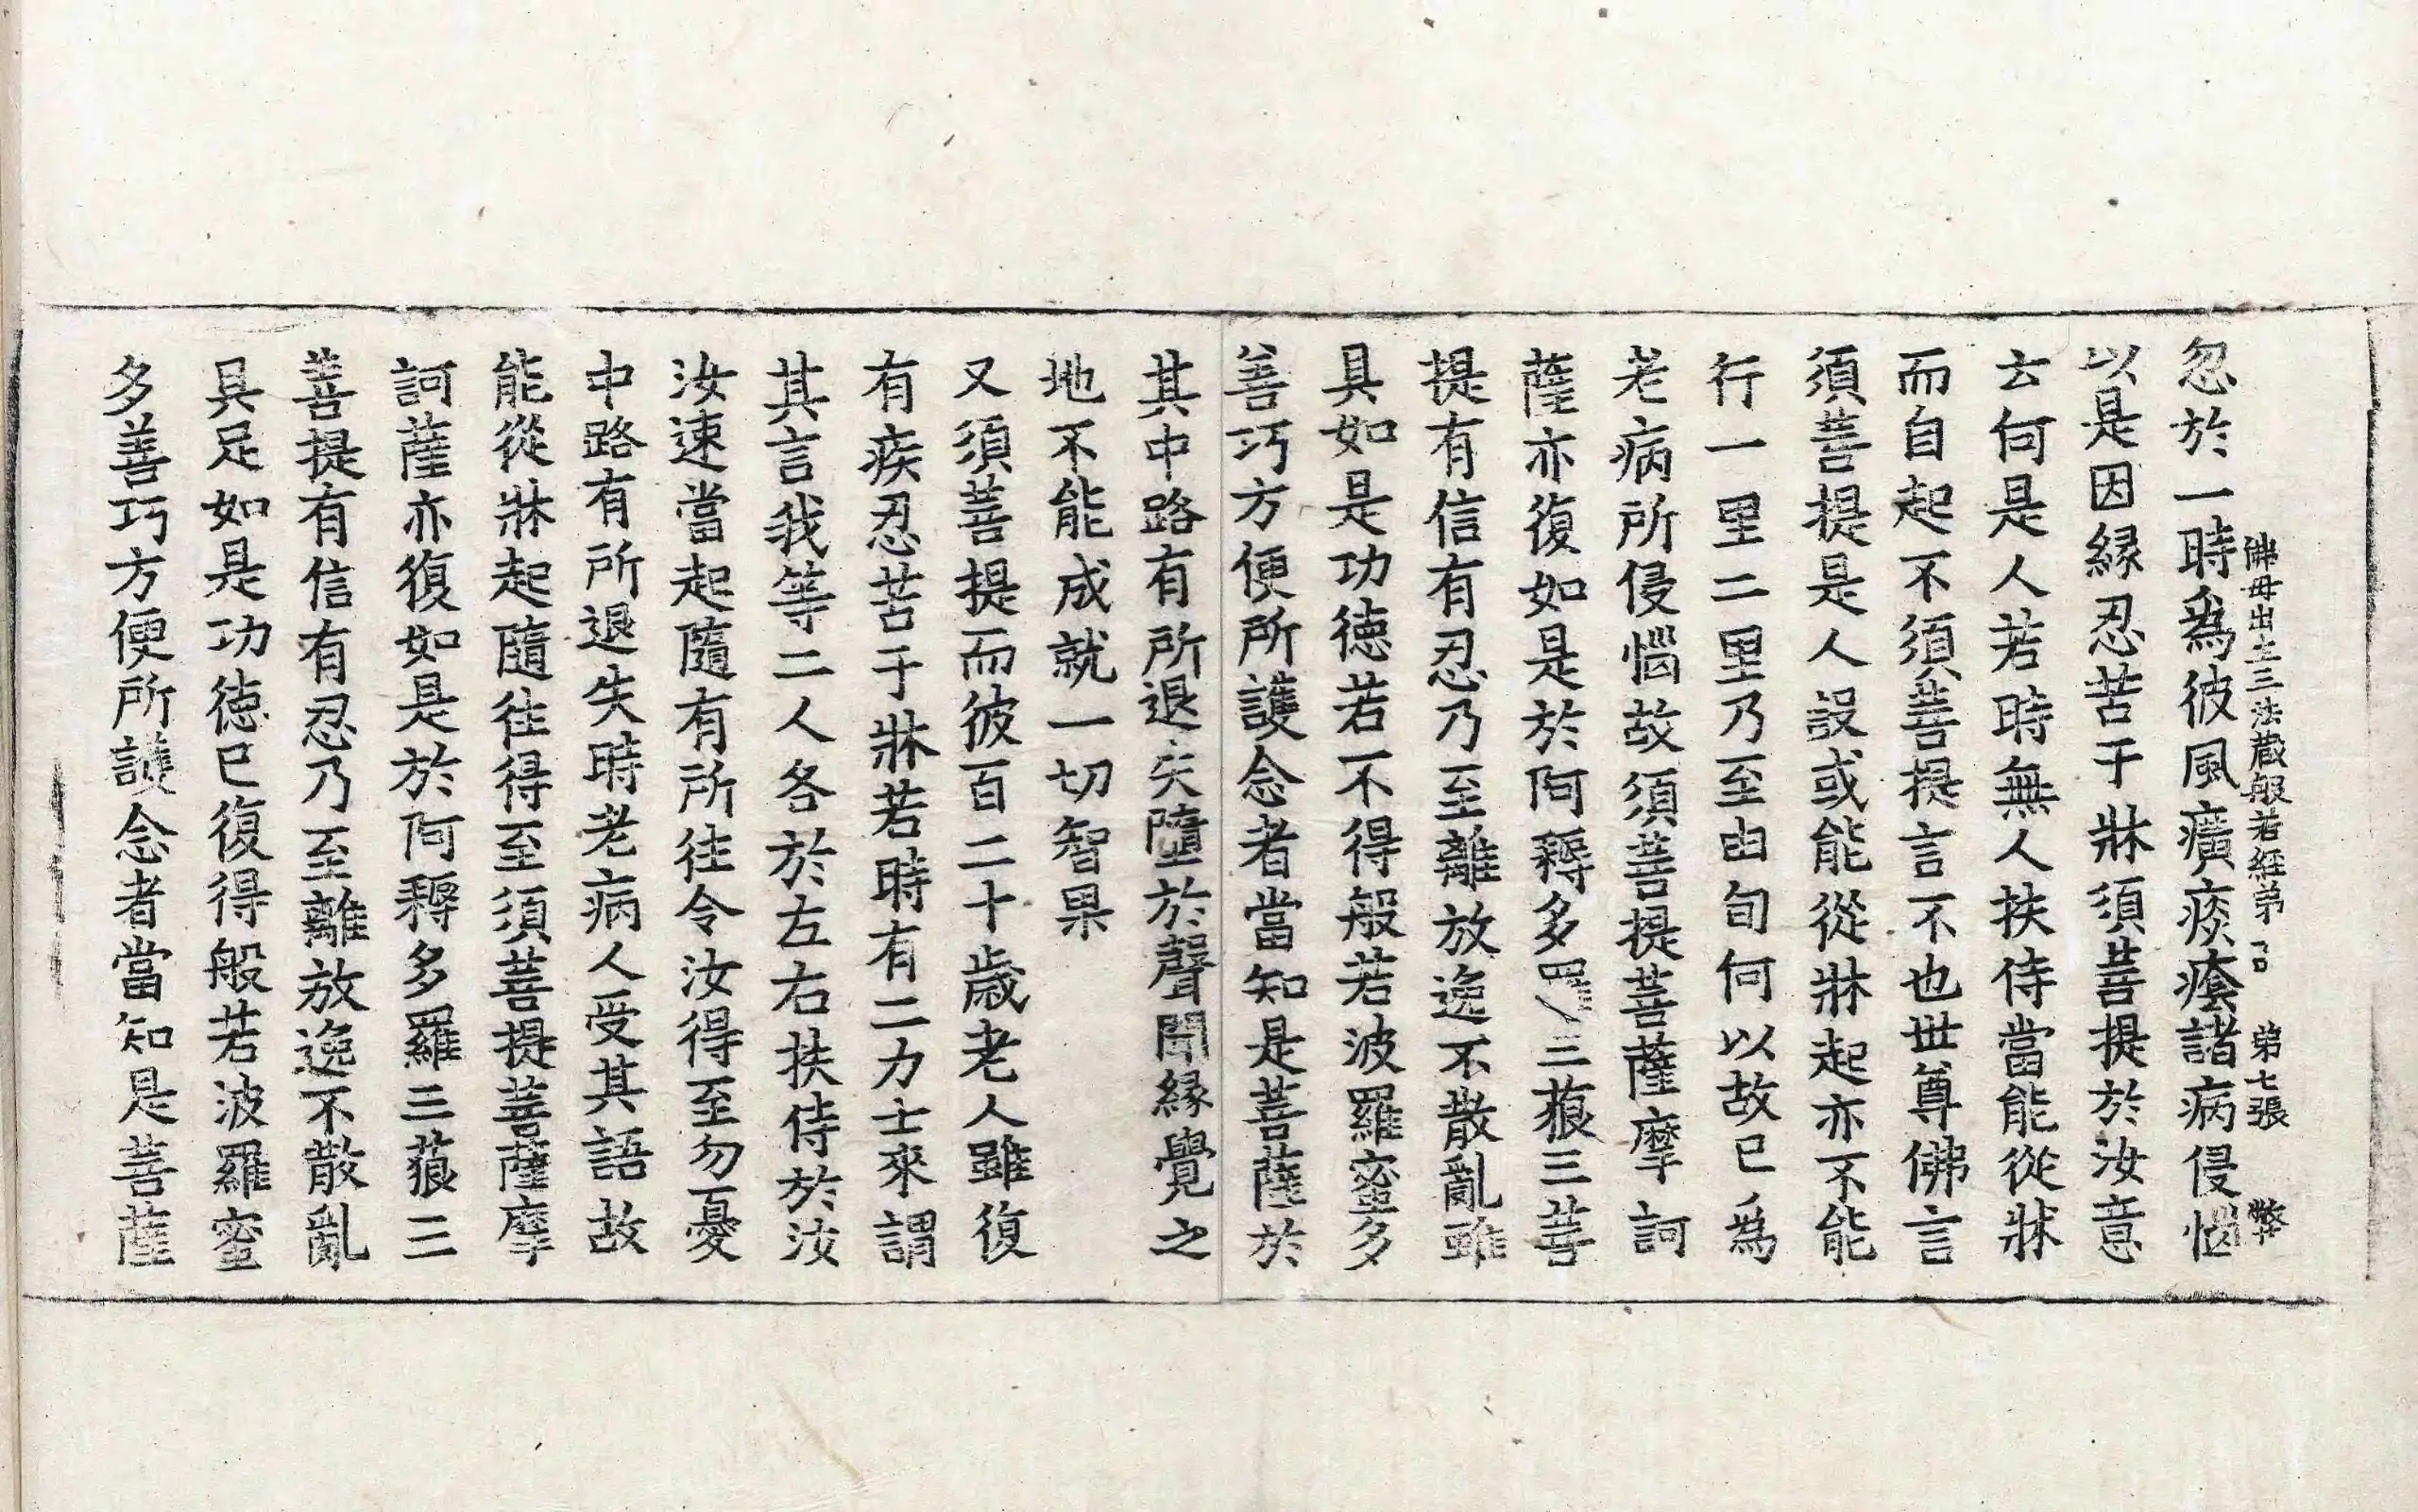 佛母出生三法藏般若經弟 弟七張 弊
忽於一時爲彼風癀痰癊諸病侵惱
以是因縁忍苦于牀須菩提於汝意
云何是人若時無人扶侍當能從牀
而自起不須菩提言不也世尊佛言
須菩提是人設或能從牀起亦不能
行一里二里乃至由旬何以故已爲
老病所侵惱故須菩提菩薩摩訶
薩亦復如是於阿耨多羅三藐三菩
提有信有忍乃至離放逸不散亂雖
具如是功德若不得般若波羅蜜多
善巧方便所護念者當知是菩薩於
其中路有所退失墮於聲聞縁覺之
地不能成就一切智果
又須菩提而彼百二十歲老人雖復
有疾忍苦于牀若時有二力士來謂
其言我等二人各於左右扶侍於汝
汝速當起隨有所往令汝得至勿憂
中路有所退失時老病人受其語故
能從牀起隨往得至須菩提菩薩摩
訶薩亦復如是於阿耨多羅三藐三
菩提有信有忍乃至離放逸不散亂
具足如是功德已復得般若波羅蜜
多善巧方便所護念者當知是菩薩